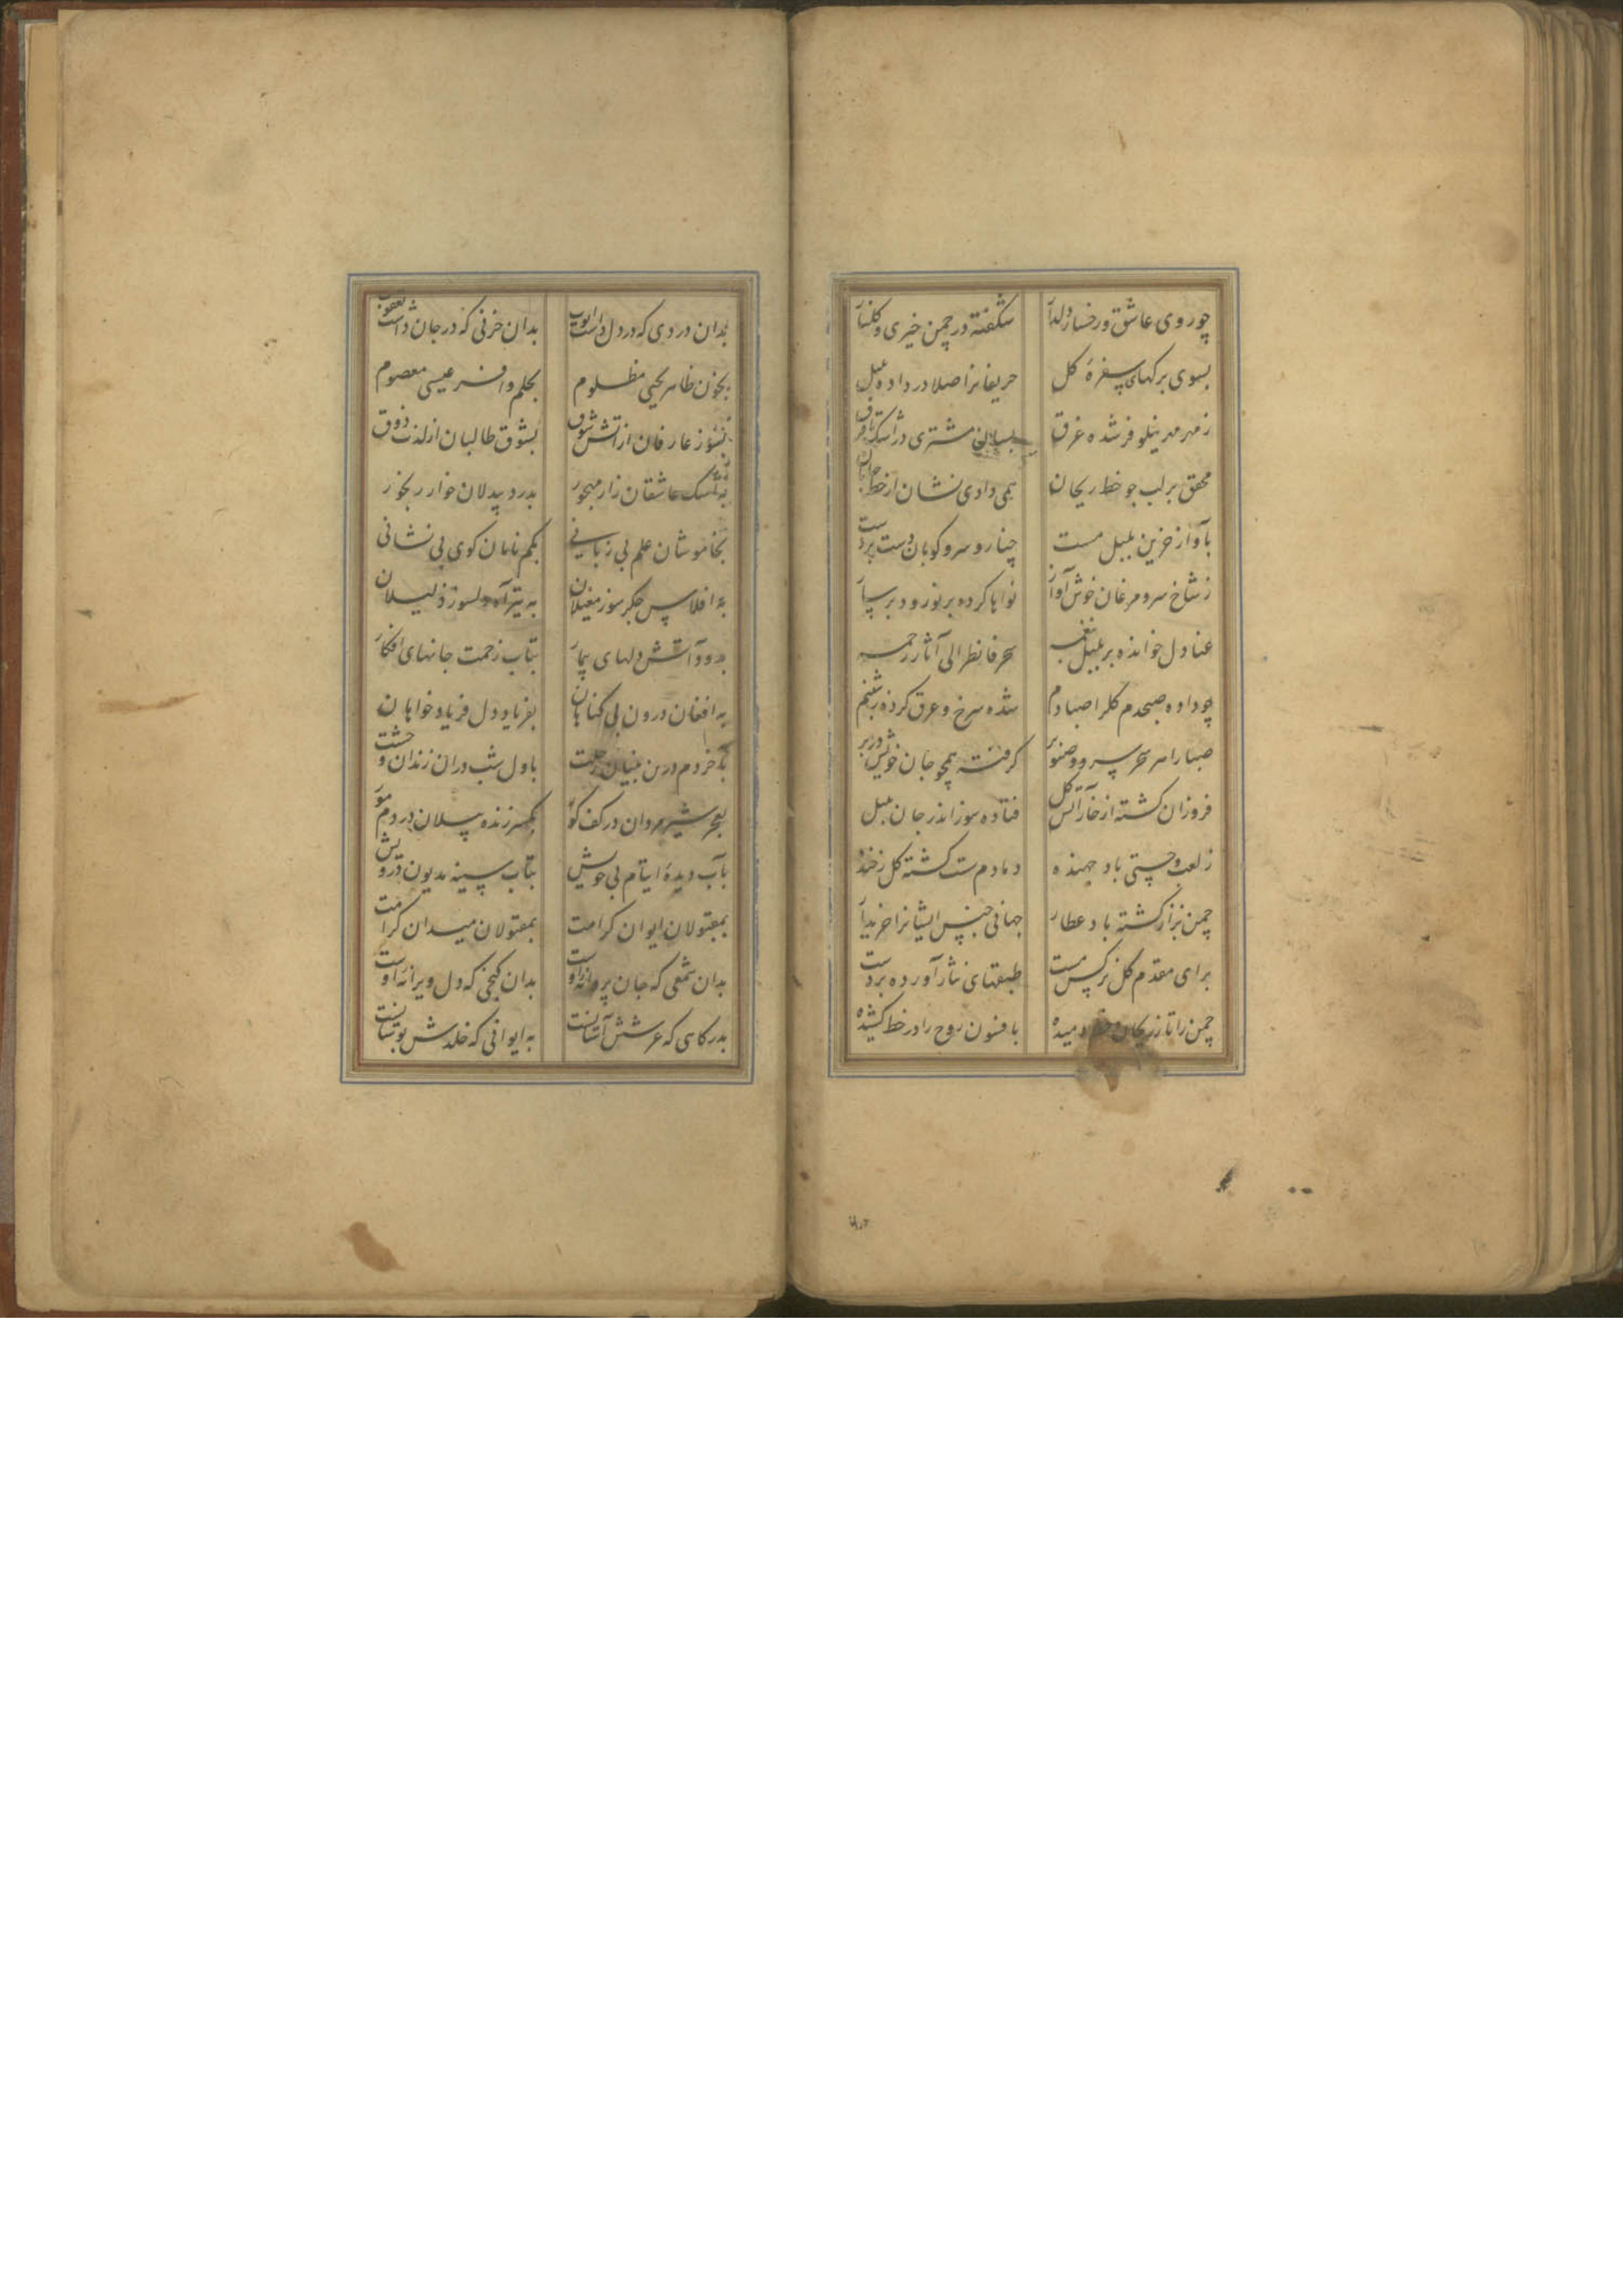 چو روی عاشق و رخسار دلدار شکفته در چمن خیری و کلنار
بسوی برکهای سفرهٔ کل حریفانرا صلا در داده بلبل
ز مهر مه نیلوفر شده غرق بسان مشتری در اشک تا فرق
محقق بر لب جو خط ریحان همی دادی نشان از خط جانان
بآواز حزین بلبل مست چنار و سرو کوبان دست بر دست
ز شاخ سرو مرغان خوش آواز نواها کرده بر نوروز بر ساز
عنادل خوانده بر بلبل بنغمه سحر فانظر الی آثار رحمه
چو داده صبحدم کلرا صبا دم شده سرخ و عرق کرده ز شبنم
صبا را هر سحر سرو و صنوبر کرفته همچو جان خویش در بر
فروزان کشته از خار آتش کل فتاده سوز اندر جان بلبل
ز لعب و چستی باد جهنده دمادم سست کشته کل ز خنده
چمن بزاز کشته باد عطار جهانی جنس ایشانرا خریدار
برای مقدم کل نرکس مست طبقهای نثار آورده بر دست
چمن را تا ز ریحان خط دمیده بافسون روح را در خط کشیده
بدان دردی که در دل داشت ایوب بدان حزنی که در جان داشت یعقوب
بخون طاهر یحیی مظلوم بحلم وافر عیسی معصوم
بسوز عارفان از آتش شوق بشوق طالبان از لذت ذوق
به اشک عاشقان زار مهجور بدرد بیدلان خوار رنجور
بخاموشان علم بی زبانی بکم نامان کوی بی نشانی
به افلاس جکر سوز معیلان به تیر آه دلسوز ذلیلان
بدود آتش دلهای بیمار بتاب زحمت جانهای افکار
به افغان درون بی کناهان بفریاد دل فریاد خواهان
بآخر دم درین بنیان رحلت باول شب دران زندان وحشت
بعجز شیر مردان در کف کور بکسر زنده پیلان در دم مور
بآب دیدهٔ ایتام بی خویش بتاب سینه مدیون درویش
بمقبولان ایوان کرامت بمقتولان میدان کرامت
بدان شمعی که جان پروانه اوست بدان کنجی که دل ویرانه اوست
بدرکاهی که عرشش آستانست به ایوانی که خلدش بوستانست